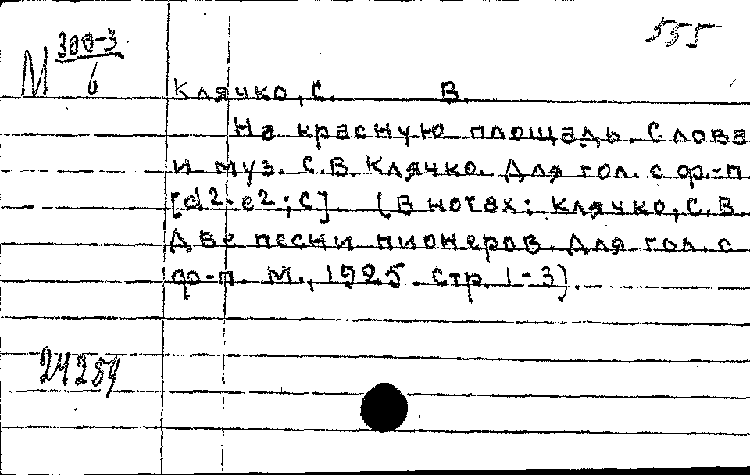 555
М 300-3
6
Клячко, С. В.
На красную площадь. Слова
и муз. С.В. Клячко. Для гол. с ф.-п
[d²-e²; C]. (В нотах: Клячко, С.В.
Две песни пионеров. Для гол. с
ф-п. М., 1925. стр. 1-3).
24259